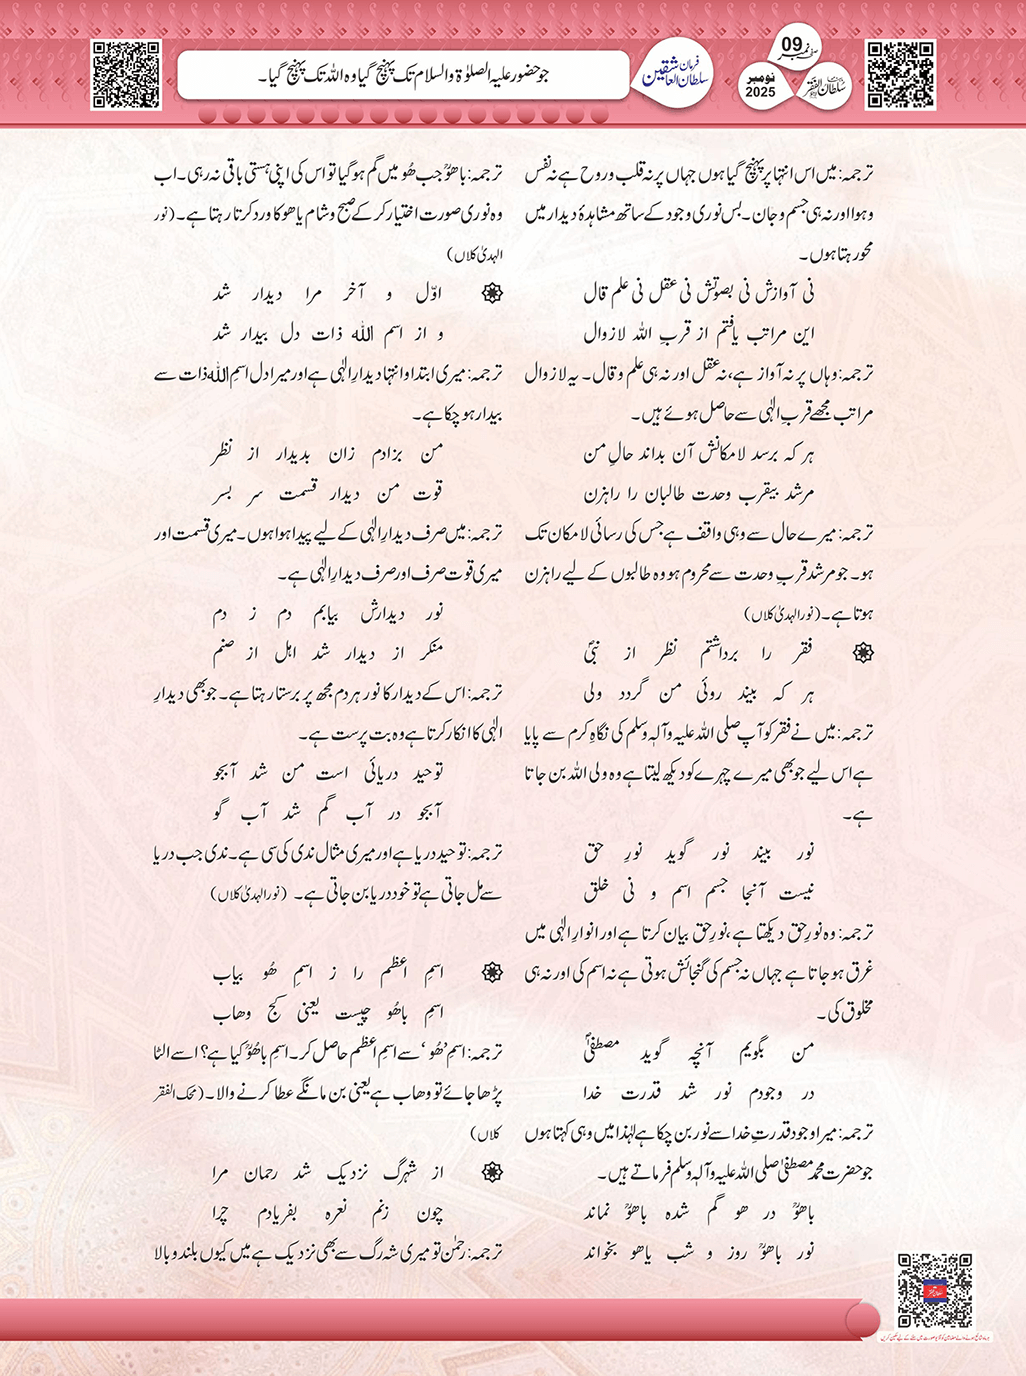 جو حضور علیہ الصلوٰۃ والسلام تک پہنچ گیا وہ اللہ تک پہنچ گیا۔
فرمان
سلطان العاشقین
صفحہ نمبر 09
نومبر
2025
سلطان الفقر
ترجمہ: میں اس انتہا پر پہنچ گیا ہوں جہاں پر نہ قلب و روح ہے نہ نفس
و ہوا اور نہ ہی جسم و جان۔ بس نوری وجود کے ساتھ مشاہدۂ دیدار میں
محو رہتا ہوں۔
نی آوازش نی بصوتش نی عقل نی علم قال
این مراتب یافتم از قربِ اللہ لازوال
ترجمہ: وہاں پر نہ آواز ہے، نہ عقل اور نہ ہی علم و قال۔ یہ لازوال
مراتب مجھے قربِ الٰہی سے حاصل ہوئے ہیں۔
ہر کہ برسد لامکانش آن بداند حالِ من
مرشد بیقرب وحدت طالبان را راہزن
ترجمہ: میرے حال سے وہی واقف ہے جس کی رسائی لامکان تک
ہو۔ جو مرشد قربِ وحدت سے محروم ہو وہ طالبوں کے لیے راہزن
ہوتا ہے۔ (نور الہدیٰ کلاں)
فقر را برداشتم نظر از نبیؐ
ہر کہ بیند روئی من گردد ولی
ترجمہ: میں نے فقر کو آپ صلی اللہ علیہ وآلہٖ وسلم کی نگاہِ کرم سے پایا
ہے اس لیے جو بھی میرے چہرے کو دیکھ لیتا ہے وہ ولی اللہ بن جاتا
ہے۔
نور بیند نور گوید نورِ حق
نیست آنجا جسم اسم و نی خلق
ترجمہ: وہ نورِ حق دیکھتا ہے، نورِ حق بیان کرتا ہے اور انوارِ الٰہی میں
غرق ہو جاتا ہے جہاں نہ جسم کی گنجائش ہوتی ہے نہ اسم کی اور نہ ہی
مخلوق کی۔
من بگویم آنچہ گوید مصطفیٰؐ
در وجودم نور شد قدرت خدا
ترجمہ: میرا وجود قدرتِ خدا سے نور بن چکا ہے لہٰذا میں وہی کہتا ہوں
جو حضرت محمد مصطفیٰ صلی اللہ علیہ وآلہٖ وسلم فرماتے ہیں۔
باھوؒ در ھو گم شدہ باھوؒ نماند
نور باھوؒ روز و شب یاھو بخواند
ترجمہ: باھوؒ جب ھُو میں گم ہو گیا تو اس کی اپنی ہستی باقی نہ رہی۔ اب
وہ نوری صورت اختیار کر کے صبح و شام یاھو کا ورد کرتا رہتا ہے۔ (نور
الہدیٰ کلاں)
اوّل و آخر مرا دیدار شد
و از اسم اللہ ذات دل بیدار شد
ترجمہ: میری ابتدا و انتہا دیدارِ الٰہی ہے اور میرا دل اسمِ اللہ ذات سے
بیدار ہو چکا ہے۔
من بزادم زان بدیدار از نظر
قوت من دیدار قسمت سر بسر
ترجمہ: میں صرف دیدارِ الٰہی کے لیے پیدا ہوا ہوں۔ میری قسمت اور
میری قوت صرف اور صرف دیدارِ الٰہی ہے۔
نور دیدارش بیابم دم ز دم
منکر از دیدار شد اہل از صنم
ترجمہ: اس کے دیدار کا نور ہر دم مجھ پر برستا رہتا ہے۔ جو بھی دیدارِ
الٰہی کا انکار کرتا ہے وہ بت پرست ہے۔
توحید دریائی است من شد آبجو
آبجو در آب گم شد آب گو
ترجمہ: توحید دریا ہے اور میری مثال ندی کی سی ہے۔ ندی جب دریا
سے مل جاتی ہے تو خود دریا بن جاتی ہے۔ (نور الہدیٰ کلاں)
اسمِ اعظم را ز اسمِ ھُو بیاب
اسمِ باھُو چیست یعنی کج وھاب
ترجمہ: اسمِ ’ھُو‘ سے اسمِ اعظم حاصل کر۔ اسمِ باھُوؒ کیا ہے؟ اسے الٹا
پڑھا جائے تو وھاب ہے یعنی بن مانگے عطا کرنے والا۔ (محک الفقر
کلاں)
از شہرگ نزدیک شد رحمان مرا
چون زنم نعرہ بفریادم چرا
ترجمہ: رحمٰن تو میری شہ رگ سے بھی نزدیک ہے میں کیوں بلند و بالا